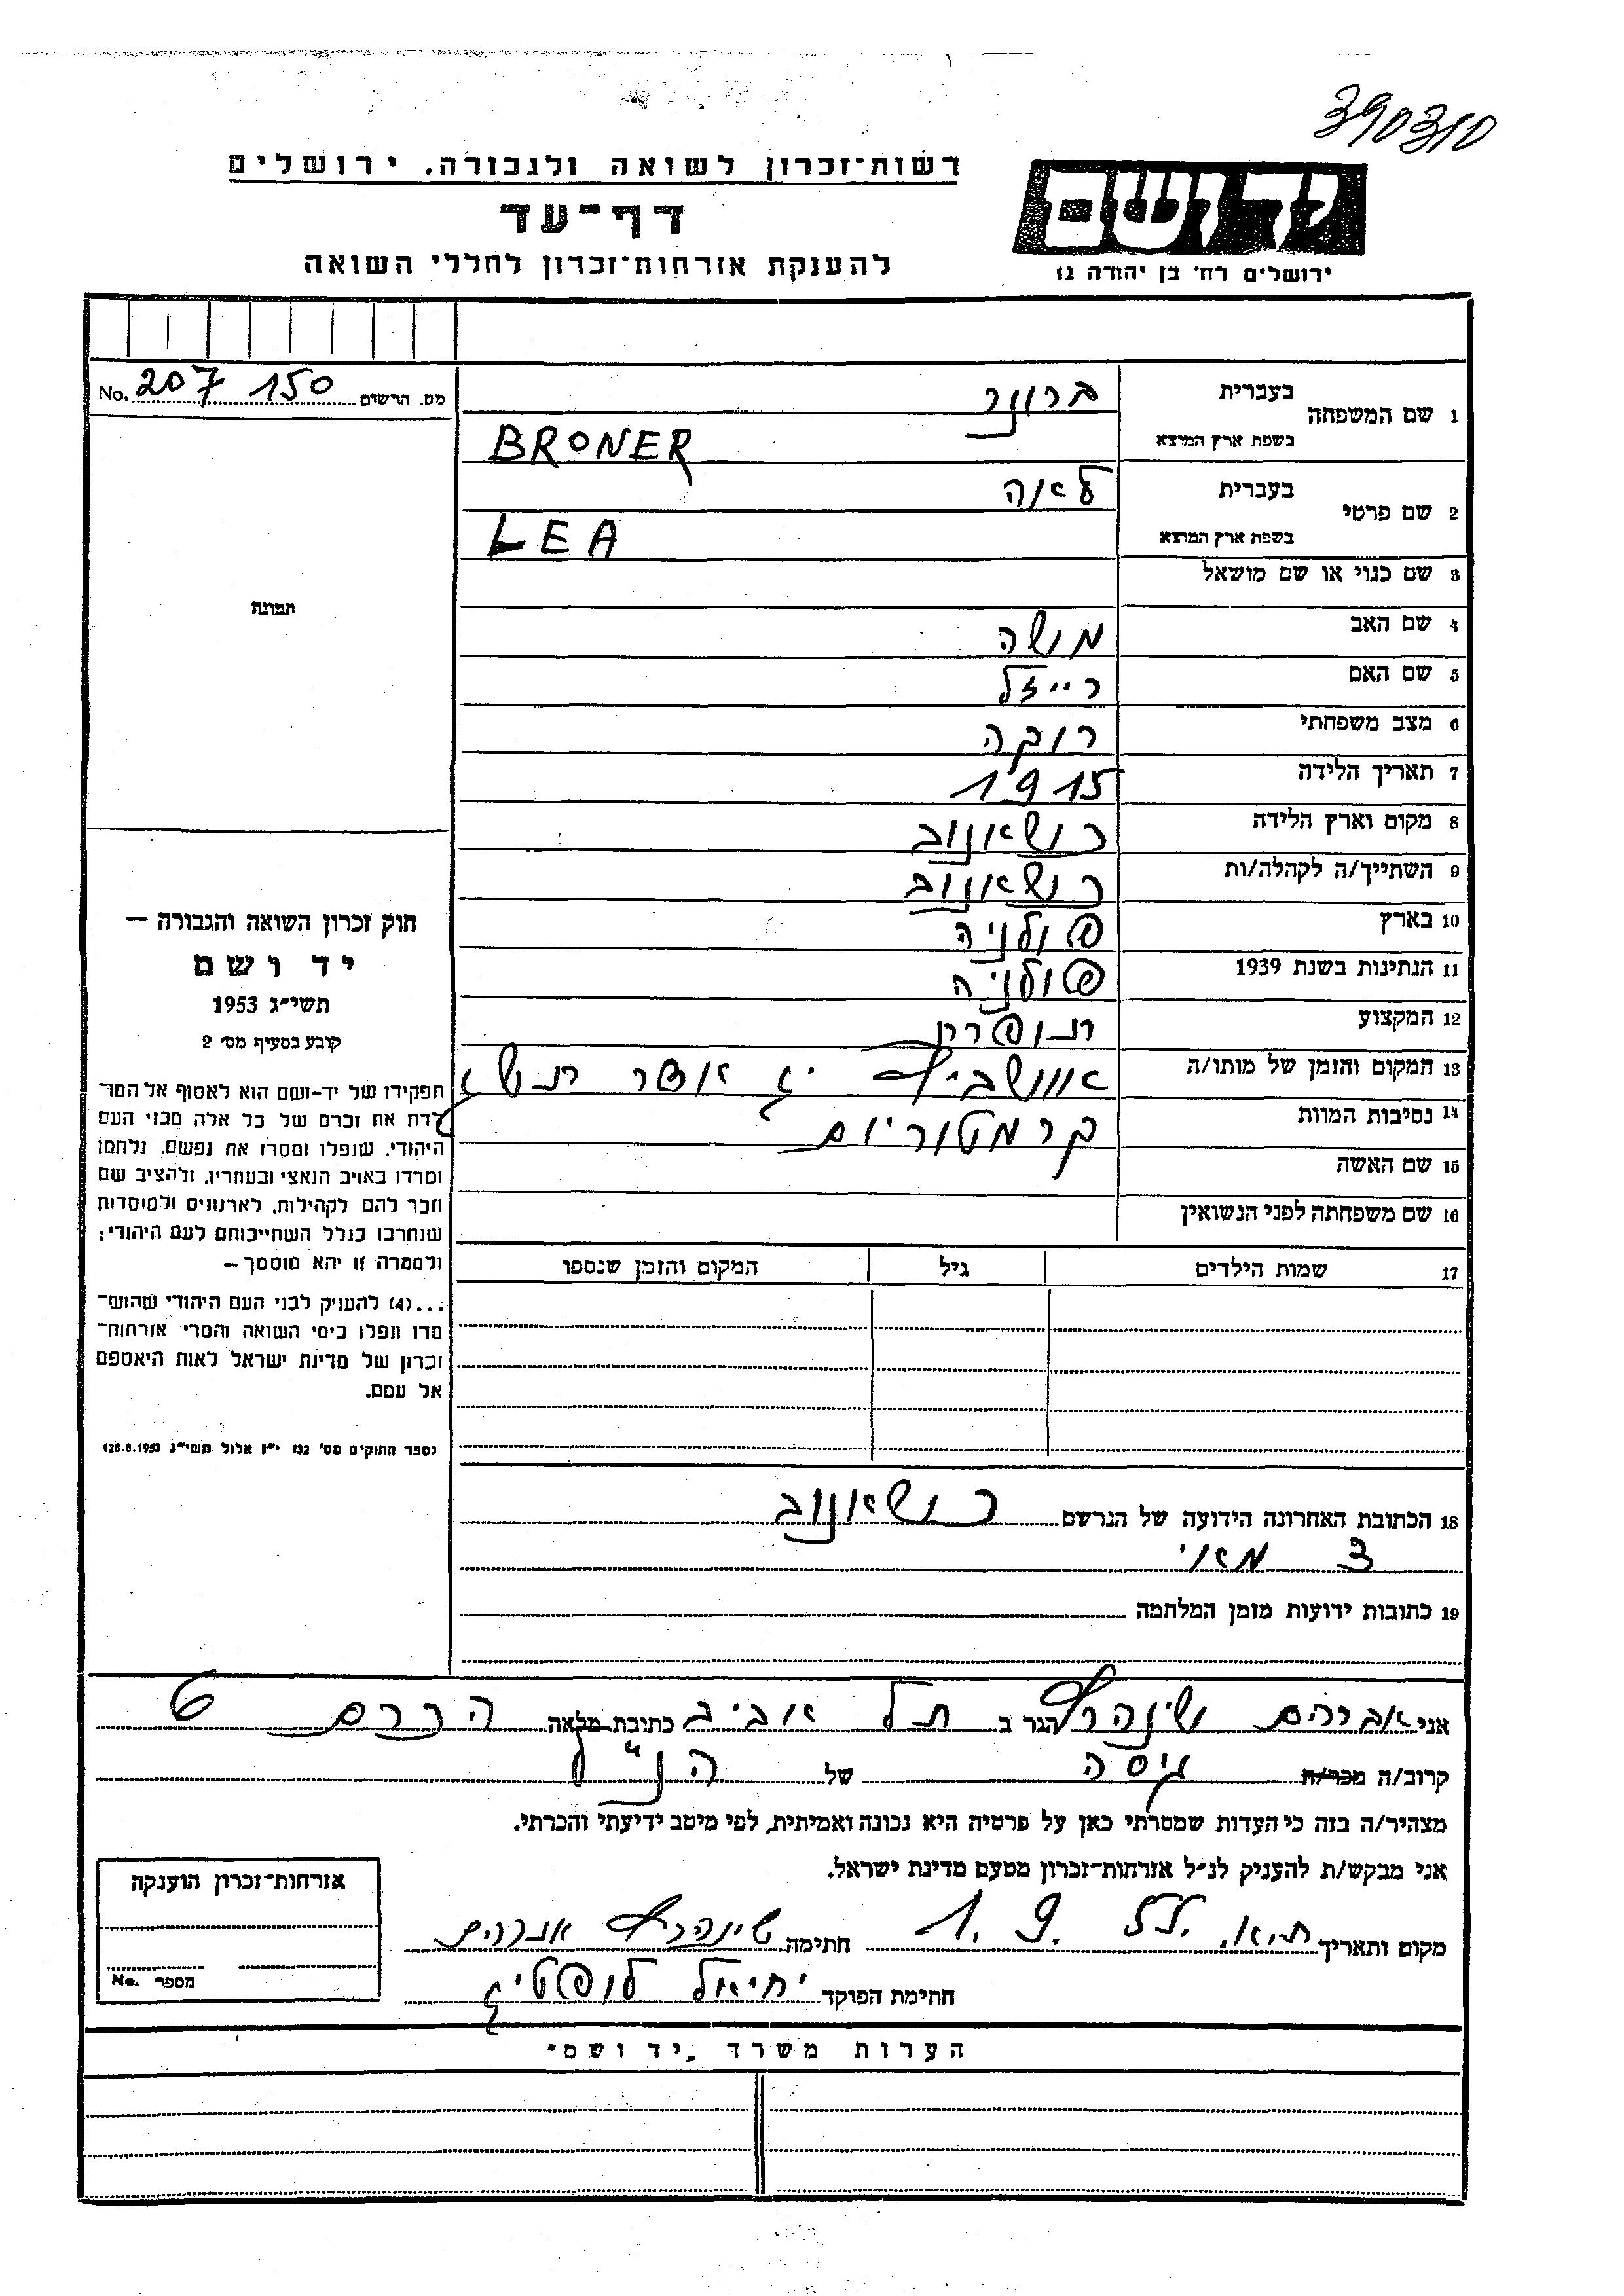 390310
רשות־זכרון לשואה ולגבורה, ירושלים
יד ושם
דף־עד
להענקת אזרחות־זכרון לחללי השואה
ירושלים רח' בן יהודה 12
מס. הרשום 207 150 No.
1 שם המשפחה בעברית ברונר
בשפת ארץ המוצא BRONER
2 שם פרטי בעברית לאה
בשפת ארץ המוצא LEA
3 שם כנוי או שם מושאל
תמונה
4 שם האב משה
5 שם האם רייזל
6 מצב משפחתי רוקה
7 תאריך הלידה 1915
8 מקום וארץ הלידה כשאנוב
9 השתייך/ה לקהלה/ות כשאנוב
10 בארץ פולניה
11 הנתינות בשנת 1939 פולניה
12 המקצוע תופרת
13 המקום והזמן של מותו/ה
14 נסיבות המוות קרמטוריום
15 שם האשה
16 שם משפחתה לפני הנשואין
17 שמות הילדים גיל המקום והזמן שנספו
חוק זכרון השואה והגבורה —
יד ושם
תשי״ג 1953
קובע בסעיף מס׳ 2
תפקידו של יד-ושם הוא לאסוף אל המו־
לדת את זכרם של כל אלה מבני העם
היהודי, שנפלו ומסרו את נפשם, נלחמו
ומרדו באויב הנאצי ובעוזריו, ולהציב שם
וזכר להם לקהילות, לארגונים ולמוסדות
שנחרבו בגלל השתייכותם לעם היהודי;
ולמטרה זו יהא מוסמך —
...(4) להעניק לבני העם היהודי שהוש־
מדו ונפלו בימי השואה והמרי אזרחות־
זכרון של מדינת ישראל לאות היאספם
אל עמם.
(ספר החוקים מס' 132 י״ז אלול תשי״ג 28.8.1953)
18 הכתובת האחרונה הידועה של הנרשם כשאנוב
3 מאי
19 כתובות ידועות מזמן המלחמה
אני אברהם הגר ב תל אביב כתובת מלאה הכרם 6
קרוב/ה מכר/ה גיסה של הנ״ל
מצהיר/ה בזה כי העדות שמסרתי כאן על פרטיה היא נכונה ואמיתית, לפי מיטב ידיעתי והכרתי.
אני מבקש/ת להעניק לנ״ל אזרחות־זכרון מטעם מדינת ישראל.
מקום ותאריך ת.א. 1. 9. 55 חתימה אברהם
חתימת הפוקד יחיאל
אזרחות־זכרון הוענקה
מספר No.
הערות משרד „יד ושם"